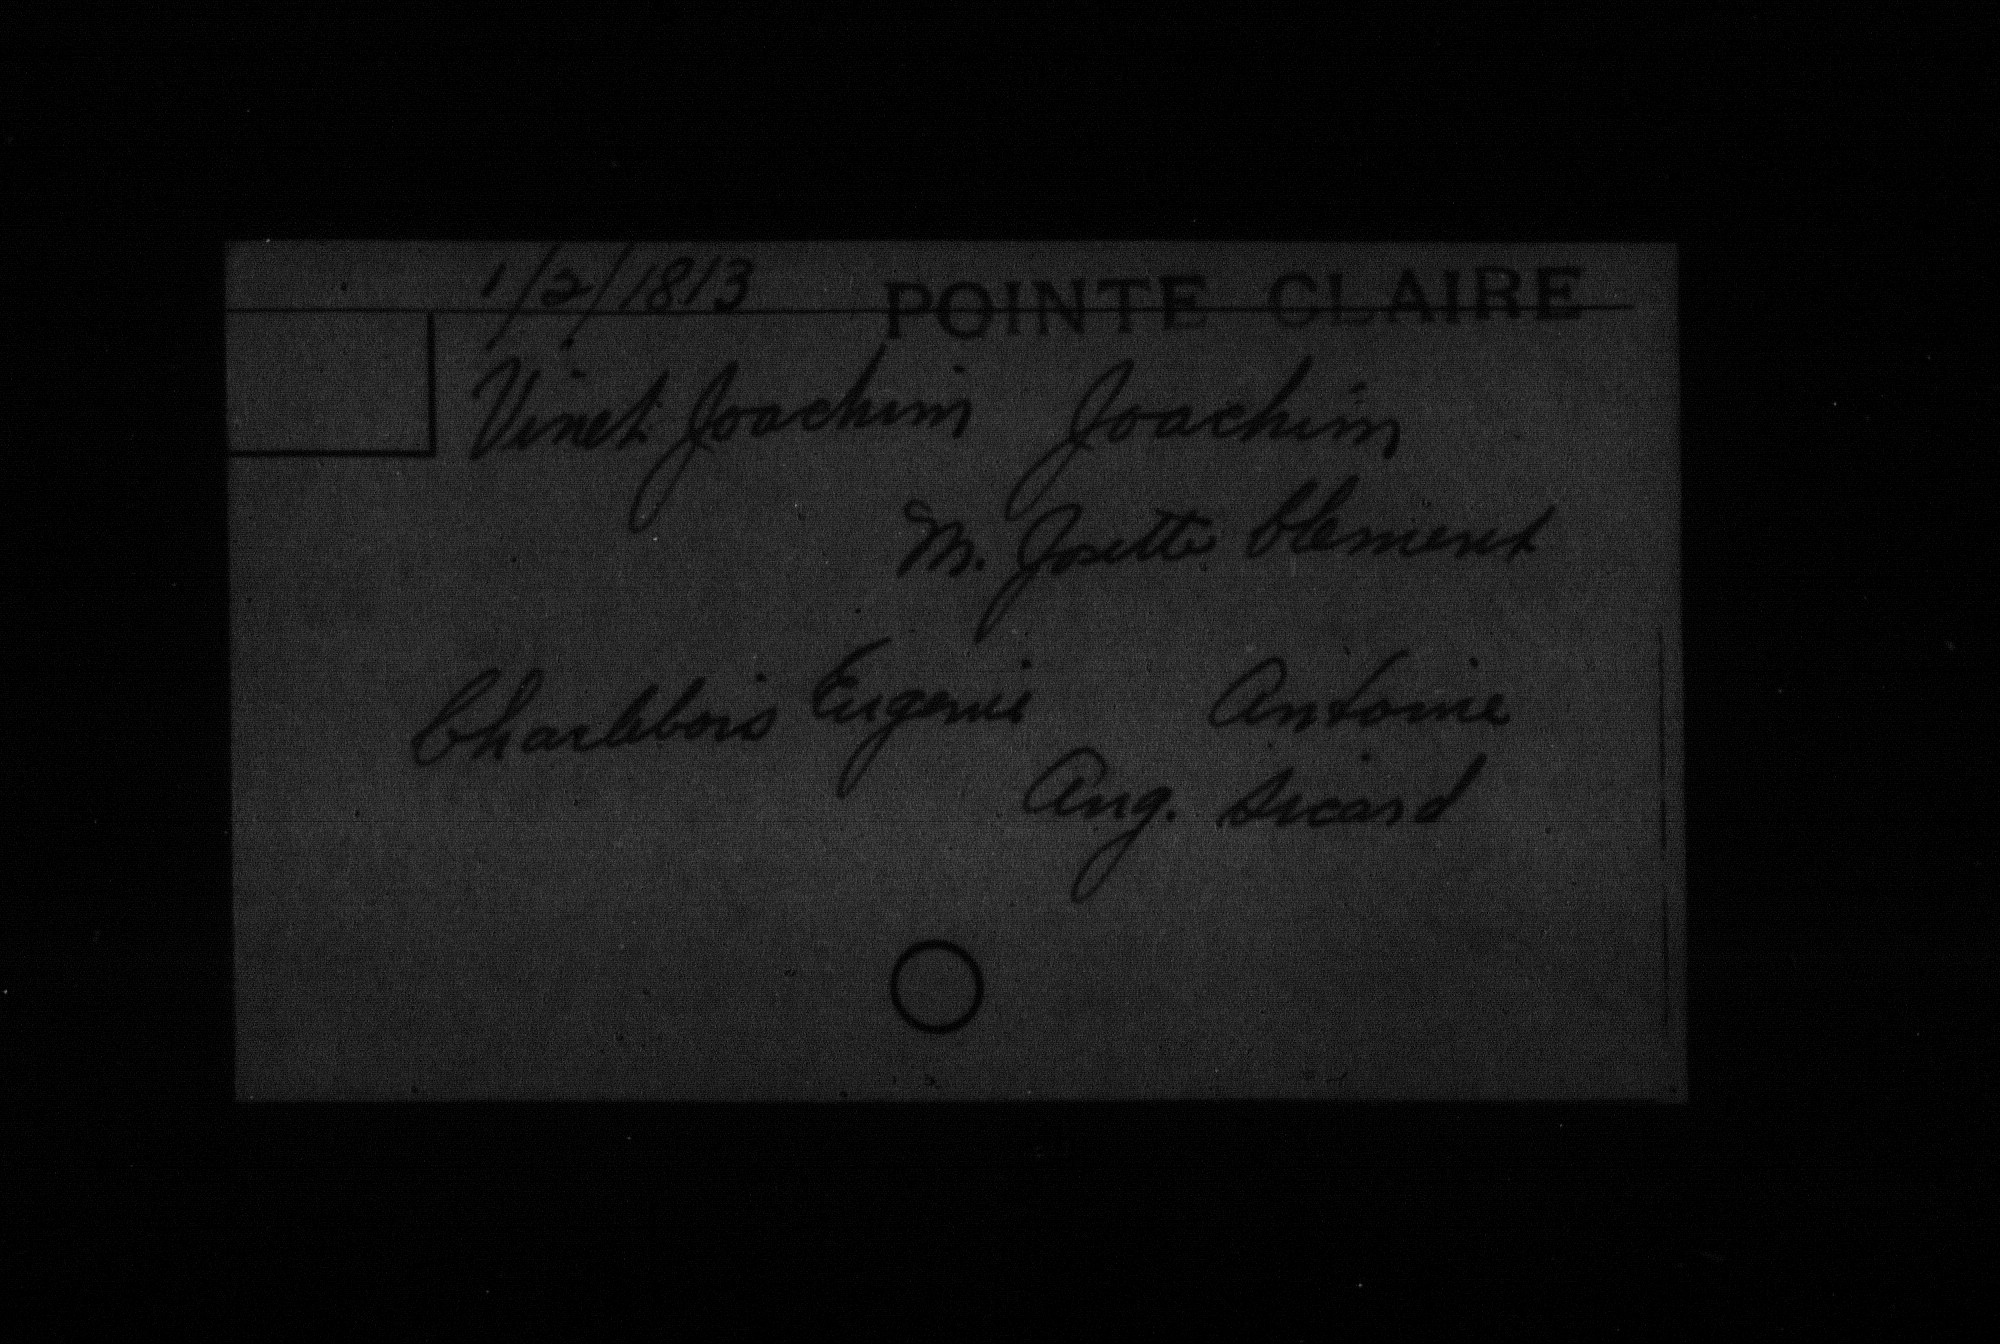 1/2/1813 POINTE CLAIRE
Vinet Joachim Joachim
M. Josette Clement
Charlebois Eugenie Antoine
Ang. Sicard